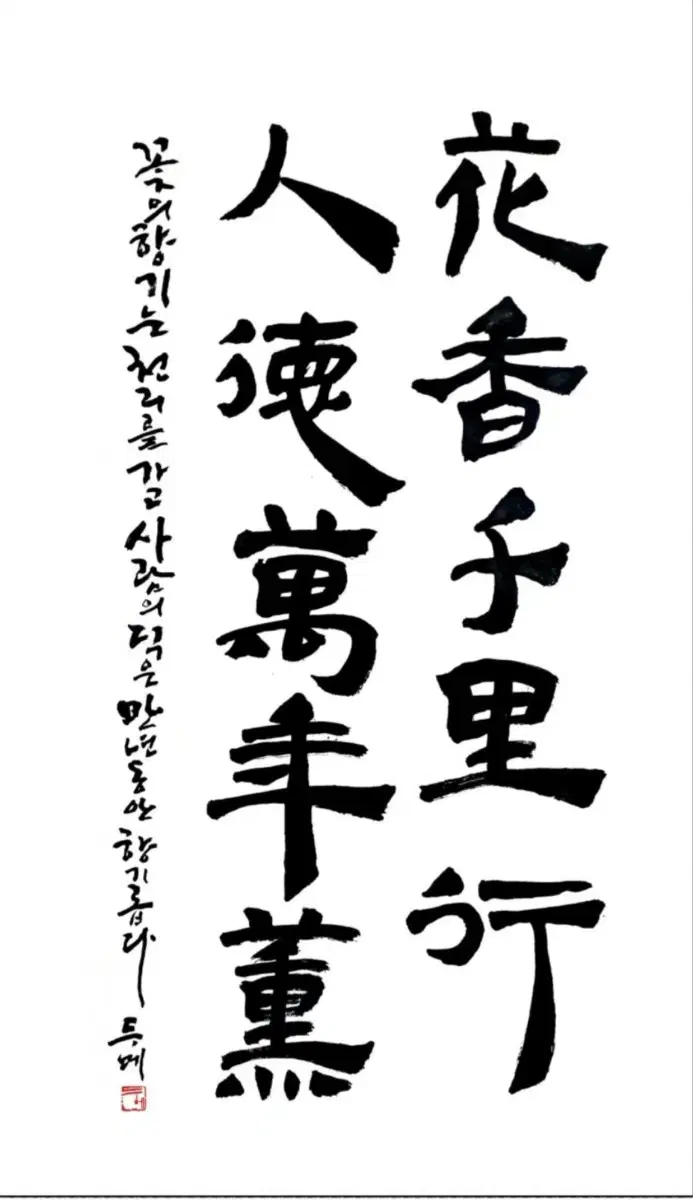 花香千里行
人德萬年薰
꽃의 향기는 천리를 가고 사람의 덕은 만년동안 향기롭다
두메